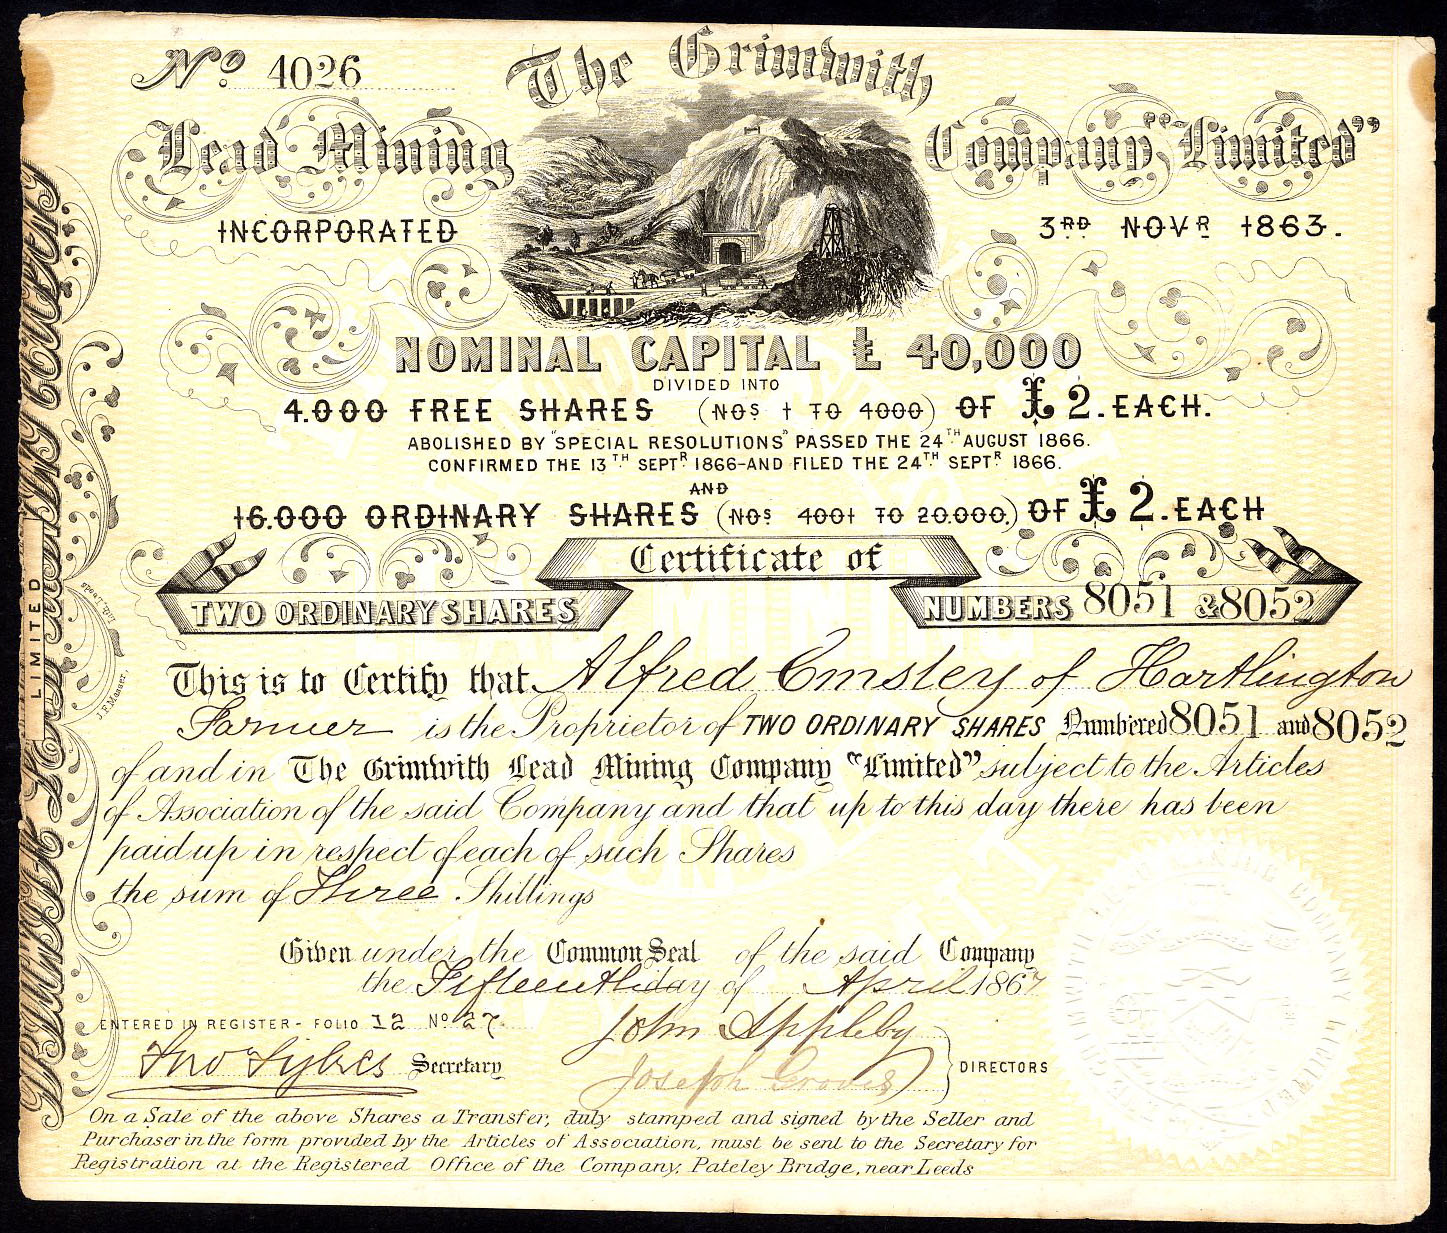 No 4026
The Grimwith
Lead Mining Company, "Limited"
INCORPORATED 3RD NOVR 1863.
NOMINAL CAPITAL £ 40,000
DIVIDED INTO
4.000 FREE SHARES (NOS 1 TO 4000) OF £ 2. EACH.
ABOLISHED BY "SPECIAL RESOLUTIONS" PASSED THE 24TH AUGUST 1866.
CONFIRMED THE 13TH SEPTR 1866-AND FILED THE 24TH SEPTR 1866.
AND
16.000 ORDINARY SHARES (NOS 4001 TO 20.000.) OF £ 2. EACH
Certificate of
TWO ORDINARY SHARES NUMBERS 8051 & 8052
This is to Certify that Alfred Emsley of Hartlington
Farmer is the Proprietor of TWO ORDINARY SHARES Numbered 8051 and 8052
of and in The Grimwith Lead Mining Company "Limited" subject to the Articles
of Association of the said Company and that up to this day there has been
paid up in respect of each of such Shares
the sum of Three Shillings
Given under the Common Seal of the said Company
the Fifteenth day of April 1867
ENTERED IN REGISTER - FOLIO 12 No 27
John Appleby
Jno Sykes Secretary
Joseph Graves
DIRECTORS
On a Sale of the above Shares a Transfer, duly stamped and signed by the Seller and
Purchaser in the form provided by the Articles of Association, must be sent to the Secretary for
Registration at the Registered Office of the Company, Pateley Bridge, near Leeds
LIMITED
J.F. Masser,
Lith. Leeds